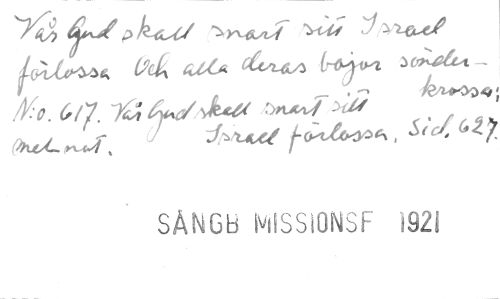 Vår Gud skall snart sitt Israel
förlossa Och alla deras bojor sönder-
krossa;
N:o. 617. Vår Gud skall snart sitt
Israel förlossa. Sid. 627.
mel-not.
SÅNGB MISSIONSF 1921